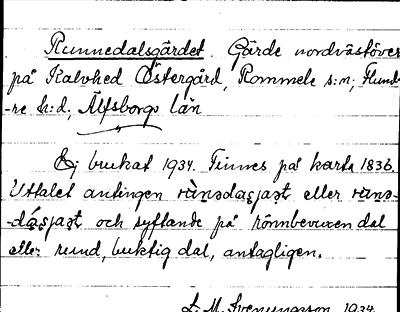 Runnedalsgärdet. Gärde nordväståver
på Kalvhed Östergård, Rommele s:n, Flund-
re h:d, Älfsborgs län
Ej brukat 1934. Finnes på karta 1836.
Uttalet antingen eller
och syftande på rönnbevuxen dal
eller rund, buktig dal, antagligen.
L. M. Svenungsson 1934